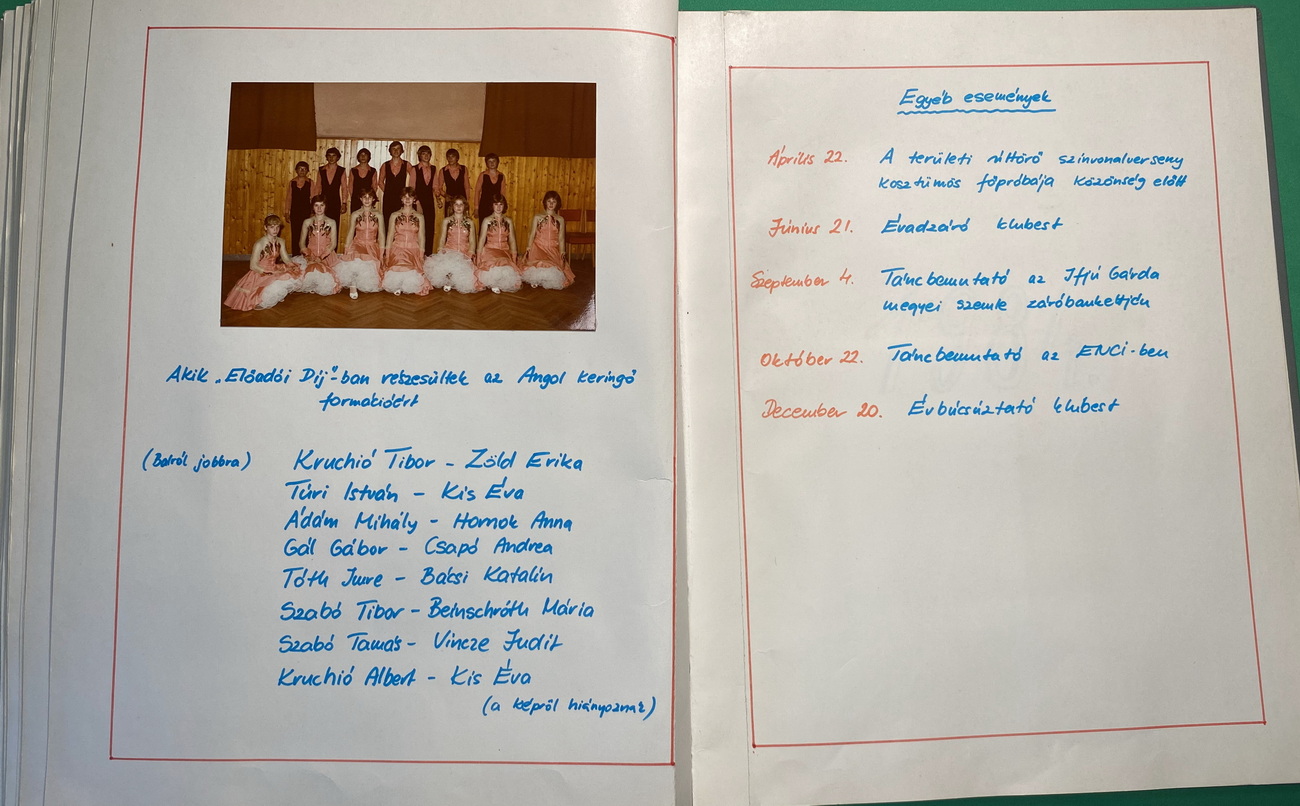 Akik „Előadói Díj"-ban részesültek az Angol keringő
formációért
(Balról jobbra) Kruchió Tibor – Zöld Erika
Túri István – Kis Éva
Ádám Mihály – Homok Anna
Gál Gábor – Csapó Andrea
Tóth Imre – Bácsi Katalin
Szabó Tibor – Beinschróth Mária
Szabó Tamás – Vincze Judit
Kruchió Albert – Kis Éva
(a képről hiányoznak)
Egyéb események
Április 22. A területi úttörő szinvonalverseny
kosztümös főpróbája közönség előtt
Június 21. Évadzáró klubest
Szeptember 4. Táncbemutató az Ifjú Gárda
megyei szemle záróbankettjén
Október 22. Táncbemutató az ENCI-ben
December 20. Évbúcsúztató klubest